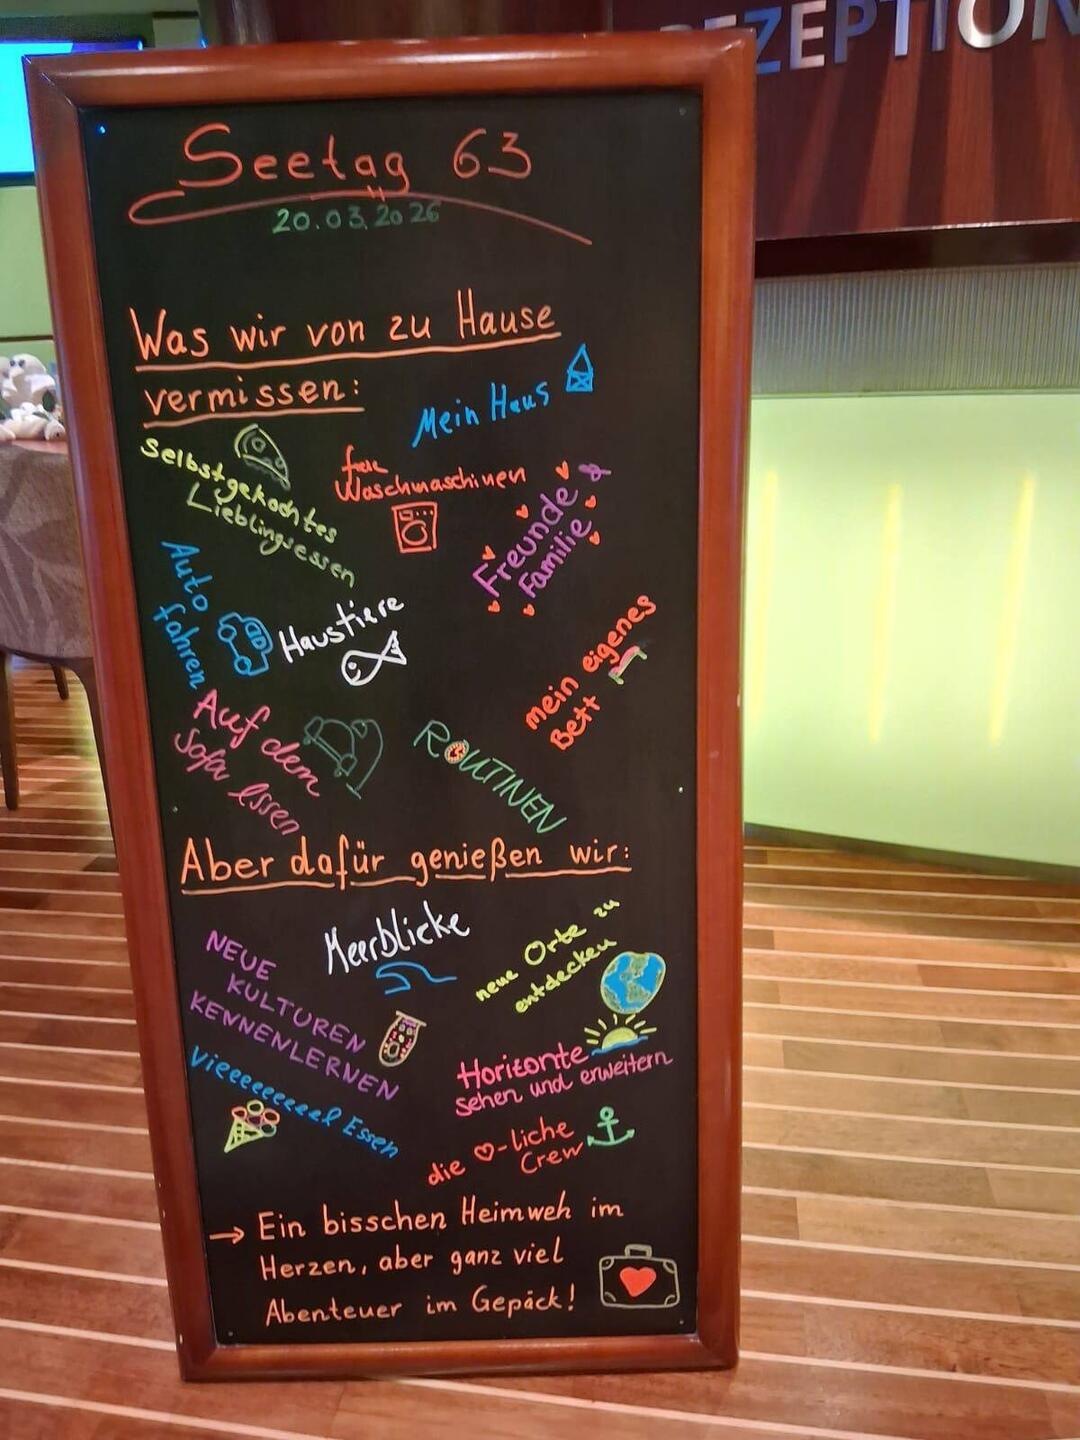 REZEPTION
Seetag 63
20.03.2026
Was wir von zu Hause
vermissen:
Mein Haus
Selbstgekochtes
Lieblingsessen
freie
Waschmaschinen
Freunde &
Familie
Auto
fahren
Haustiere
mein eigenes
Bett
Auf dem
Sofa essen
ROUTINEN
Aber dafür genießen wir:
Meerblicke
neue Orte zu
entdecken
NEUE
KULTUREN
KENNENLERNEN
Horizonte
sehen und erweitern
Vieeeeeeeeel Essen
die ♡-liche
Crew
→ Ein bisschen Heimweh im
Herzen, aber ganz viel
Abenteuer im Gepäck!